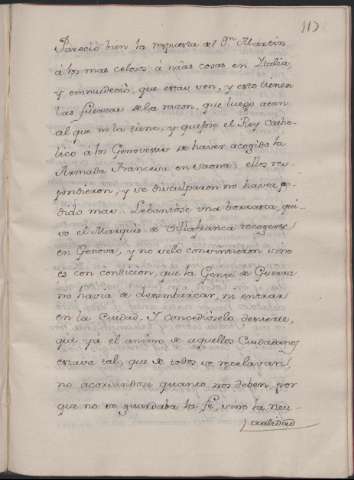 117
Pareció bien la respuesta del Dn. Martin
á los mas celosos á nr̃as cosas en Italia,
y enmudeció, que estas ven, y esto tienen
las fuerzas de la razon, que luego atan
al que no la tiene, y quejose el Rey Catho-
lico á los Genoveses de haver acogido la
Armada Francesa en Saona: ellos res-
pondieron, y se disculparon no haver po-
dido mas. Lebantóse una borrasca, qui-
so el Marques de Villafranca recogerse
en Genova, y no se lo consintieron sino
es con condicion, que la Gente de Guerra
no havia de desembarcar, ni entrar
en la Ciudad. Y concediosela de suerte,
que ya el animo de aquellos Ciudadanos
estava tal, que de todos se recelavan,
no acordandose quanto nos deben, por
que no se guardaba la fe, sino la neu-
tralidad